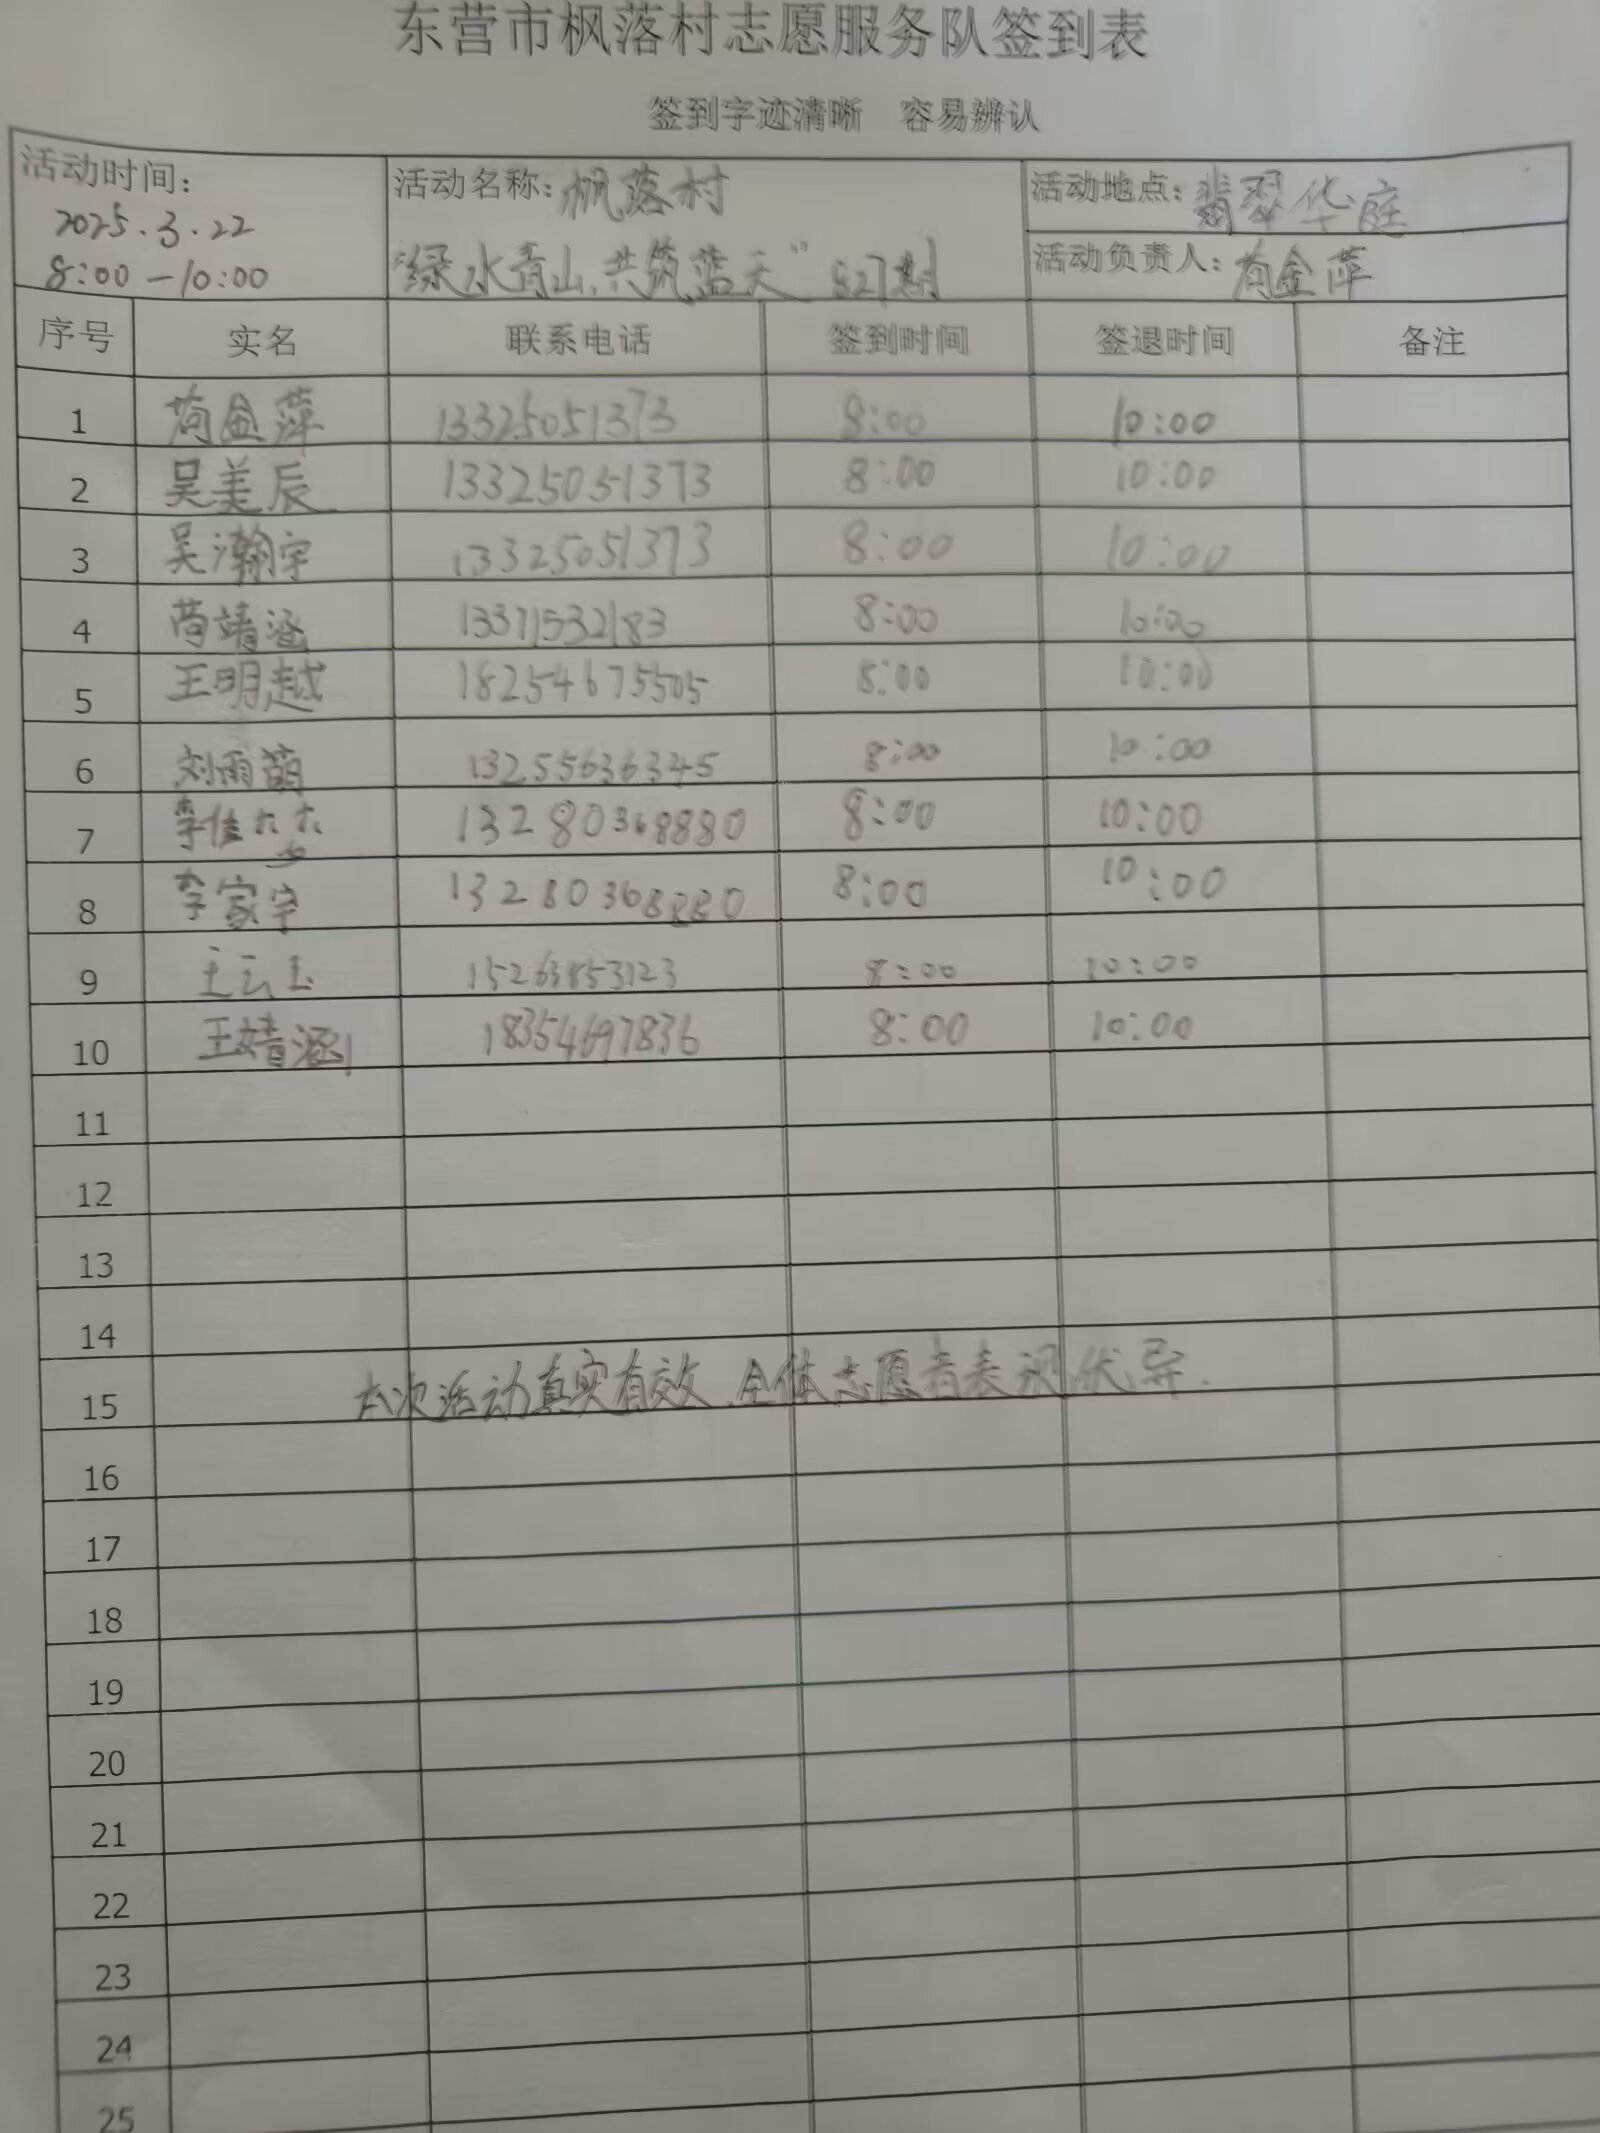 东营市枫落村志愿服务队签到表
签到字迹清晰 容易辨认
活动时间: 2025.3.22 8:00—10:00
活动名称: 枫落村 "绿水青山,共筑蓝天" 827期
活动地点: 翡翠华庭
活动负责人: 苟金萍
序号 实名 联系电话 签到时间 签退时间 备注
1 苟金萍 13325051373 8:00 10:00
2 吴美辰 13325051373 8:00 10:00
3 吴瀚宇 13325051373 8:00 10:00
4 苟靖涵 13371532183 8:00 10:00
5 王明越 18254675505 8:00 10:00
6 刘雨萌 13255636345 8:00 10:00
7 李佳 13280368880 8:00 10:00
8 李家宇 13280368880 8:00 10:00
9 王云玉 15263853123 8:00 10:00
10 王婧涵 18354697836 8:00 10:00
11
12
13
14
15 本次活动真实有效,全体志愿者表现优异.
16
17
18
19
20
21
22
23
24
25